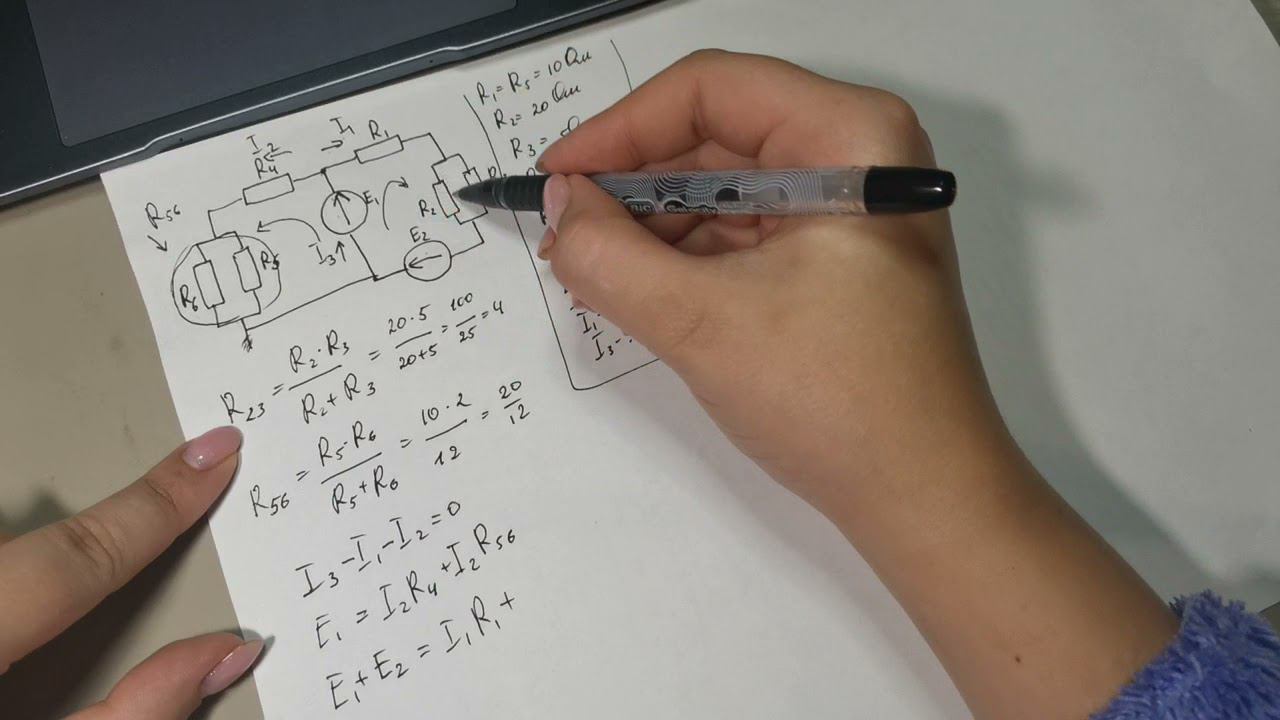 R₁=R₅=10Ом
R₂=20Ом
R₃=
I₁
I₂
R₄
R₁
R₅₆
E₁
R₂
I₃
E₂
R₆
R₅
R₂₃ = R₂·R₃ / R₂+R₃ = 20·5 / 20+5 = 100/25 = 4
R₅₆ = R₅·R₆ / R₅+R₆ = 10·2 / 12 = 20/12
I₃-I₁-I₂=0
E₁ = I₂R₄+I₂R₅₆
E₁+E₂ = I₁R₁+
I₁
I₃-